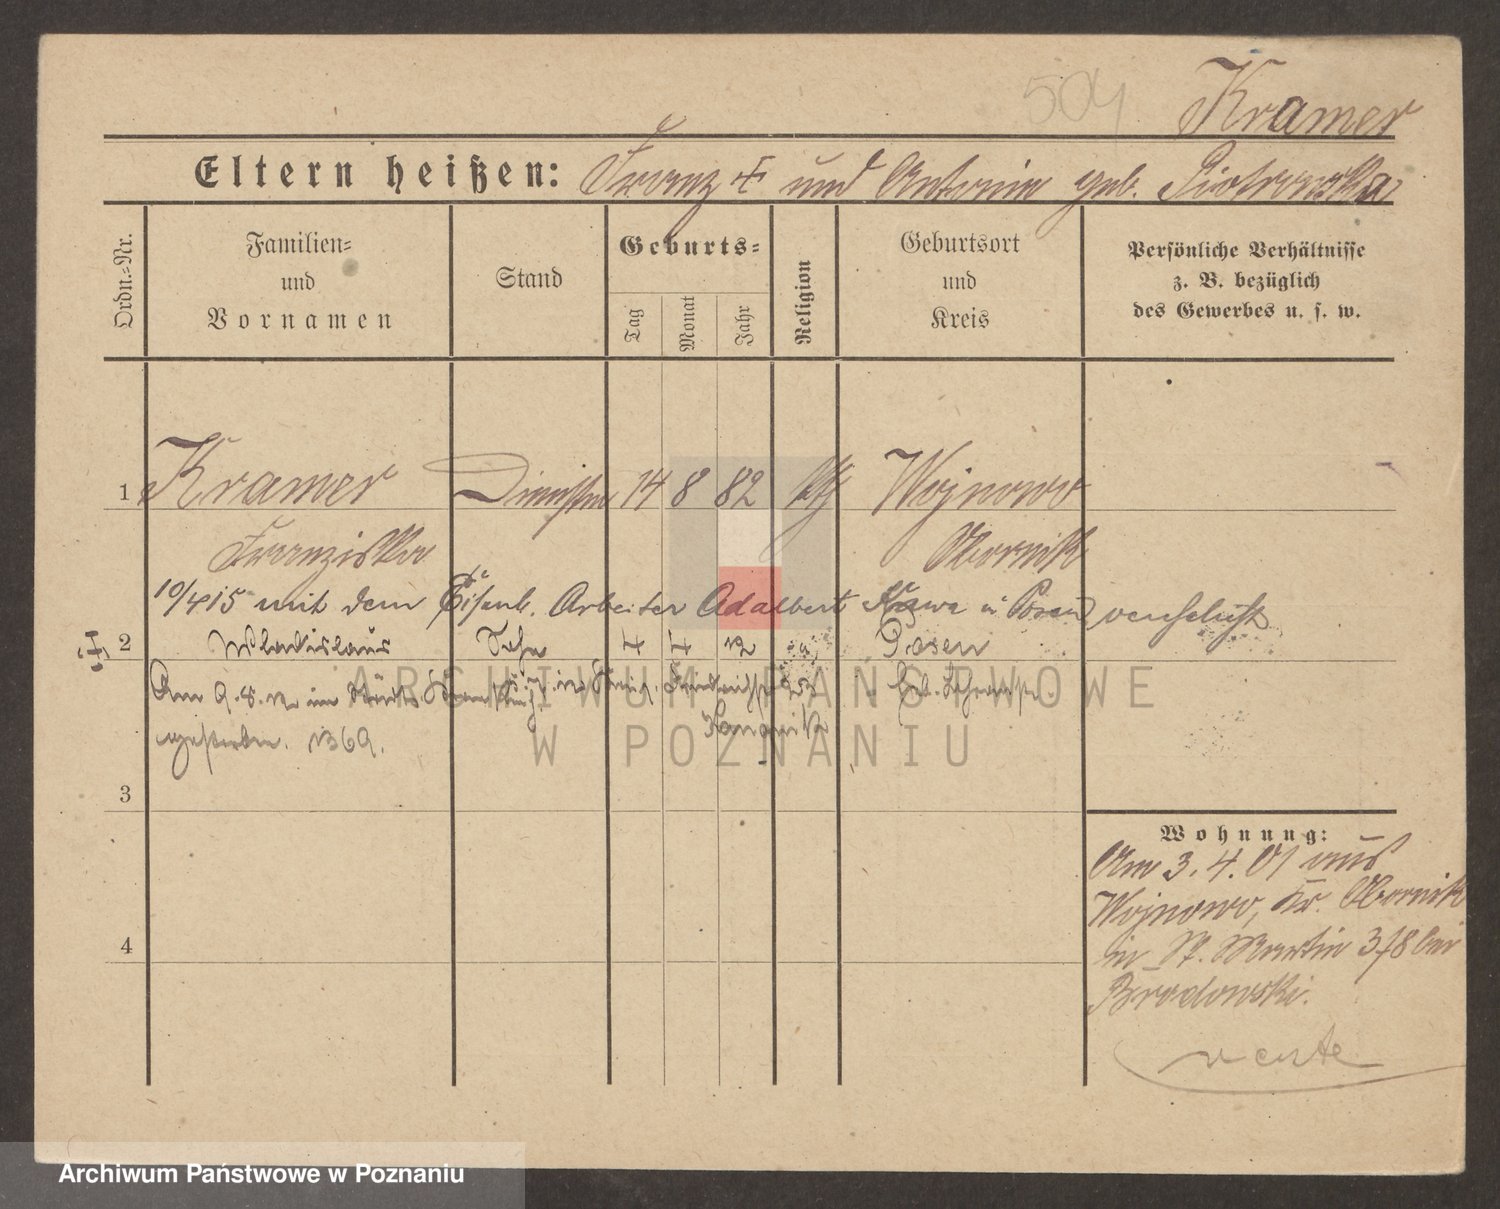 504
Kramer
Eltern heißen: Franz † und Antonie geb. Piotrowska
Ordn.=Nr.
Familien=
und
Vornamen
Stand
Geburts=
Tag
Monat
Jahr
Religion
Geburtsort
und
Kreis
Persönliche Verhältnisse
z. B. bezüglich
des Gewerbes u. s. w.
1 Kramer 14 8 82 kth Wojnowo
Franziska Obornik
10/4 15 mit dem Eisenb. Arbeiter Adalbert in Posen verehelicht
2 Wladislaus Sohn 4 4 12 Posen
Am 9.8.12 im
gestorben. 1369.
3
4
Wohnung:
Am 3. 4. 01 aus
Wojnowo, Kr. Obornik
in St. Martin 378 bei
Brodowski.
ARCHIWUM PAŃSTWOWE
W POZNANIU
Archiwum Państwowe w Poznaniu